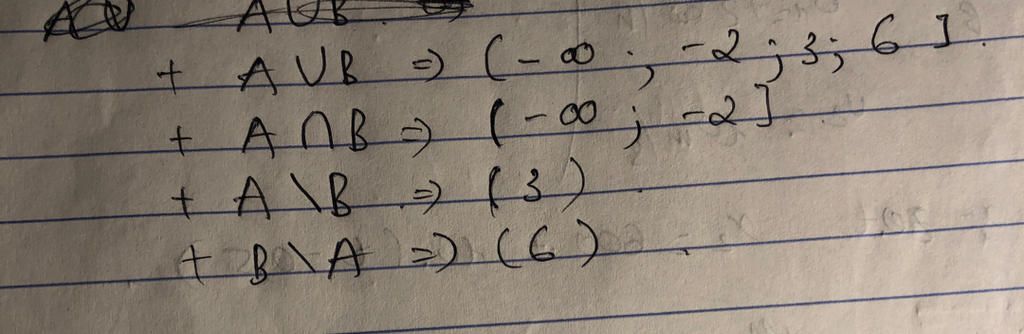 A∪B
+ A∪B ⇒ (-∞ ; -2 ; 3 ; 6 ].
+ A∩B ⇒ (-∞ ; -2]
+ A \ B ⇒ (3)
+ B \ A ⇒ (6)